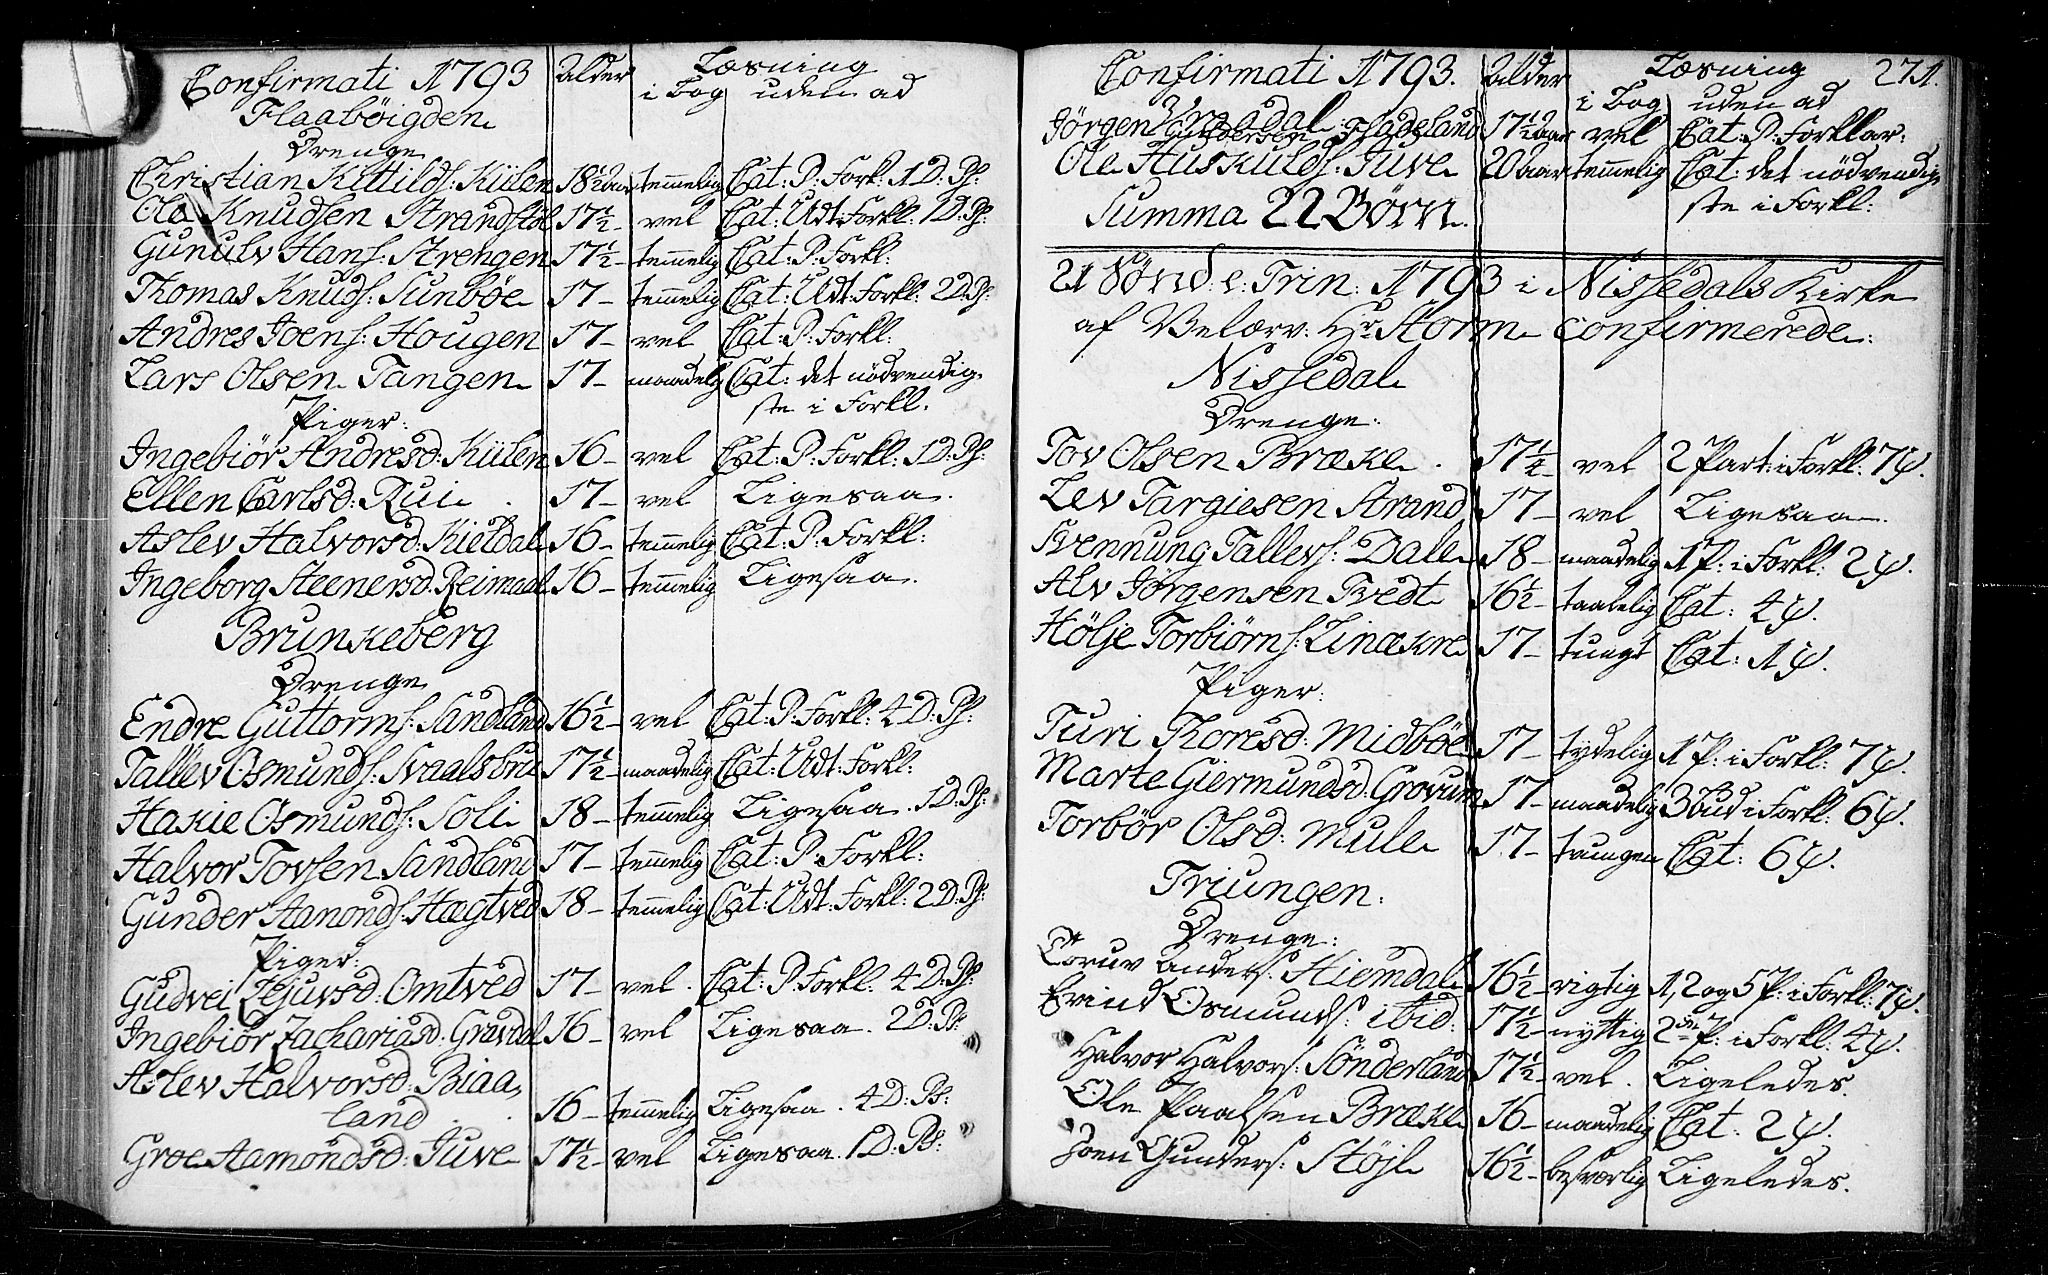 Confirmati 1793 Alder Læsning
i Bog uden ad
Flaabøigden
Drenge
Christian Kittilds: Kiilen 18½ aar temmelig Cat: P: Forkl: 1 D: Ps:
Ole Knudsen Strandstøl 17½ - vel Cat: Udt: Forkl: 1 D: Ps:
Gunulv Hans: Strengen 17½ - temmelig Cat: P: Forkl:
Thomas Knuds: Sunbøe 17 - temmelig Cat: Udt: Forkl: 2 D: Ps:
Andres Joens: Hougen 17 - vel Cat: P: Forkl:
Lars Olsen Tangen 17 - maadelig Cat: det nødvendig-
ste i Forkl.
Piger:
Ingebiør Andresd: Kiilen 16 - vel Cat: P: Forkl: 1 D: Ps:
Ellen Carlsd: Rui 17 - vel Ligesaa.
Aslev Halvorsd: Kieldal 16 - temmelig Cat: P: Forkl:
Ingeborg Steenersd: Reimaal 16 - temmelig Ligesaa.
Brunkeberg
Drenge
Endre Guttorms: Sandland 16½ - vel Cat: P: Forkl: 4 D: Ps:
Tallev Osmunds: Svaalsbru 17½ - maadelig Cat: Udt: Forkl:
Hakie Osmunds: Soli 18 - temmelig Ligesaa. 1 D: Ps:
Halvor Tovsen Sandland 17 - temmelig Cat: P: Forkl:
Gunder Aamonds: Hægtved 18 - temmelig Cat: Udt: Forkl: 2 D: Ps:
Piger:
Gudvei Lejuvsd: Omtved 17 - vel. Cat: P: Forkl: 4 D: Ps:
Ingebiør Zachariasd: Gravdal 16 - vel Ligesaa. 2 D: Ps:
Aslev Halvorsd: Biaa,
land 16 - temmelig Ligesaa. 4 D: Ps:
Groe Aamondsd: Juve 17½ - vel Ligesaa. 1 D: Ps:
Confirmati 1793. Alder Læsning 271.
i Bog uden ad
Vraadal
Jørgen Gundersen Fladeland 17½ aar vel Cat: P: Forklar:
Ole Huskulds: Juve 20 aar temmelig Cat: det nødvendig-
Summa 22 Børn. ste i Forkl:
21 Sønd: e: Trin: 1793 i Nissedals Kirke
af Velærv: Hr Storm confirmerede:
Nissedal
Drenge:
Tov Olsen Bræke. 17¼ - vel 2 Part: i Forkl: 7 ψ.
Lev Targiesen Strand 17 - vel Ligesaa.
Svennung Tallevs: Dale 18 - maadelig 1 P: i Forkl: 2 ψ.
Alv Jørgensen Tvedt 16½ - taalelig Cat: 4 ψ.
Hølje Torbiørns: Linækre 17 - tungt Cat: 1 ψ.
Piger:
Turi Thoresd: Midbøe 17 - tydelig 1 P: i Forkl: 7 ψ.
Marte Giermundsd: Grovum 17 - maadelig 3 Bud i Forkl: 6 ψ.
Torbør Olsd: Mule 17 - tvungen Cat: 6 ψ.
Triungen.
Drenge:
Anders: Hiemdal 16½ - rigtig 1, 2 og 5 P: i Forkl: 7 ψ.
Evind Osmunds: ibid: 17½ - nyttig 2den P: i Forkl: 4 ψ.
Halvor Halvors: Sønderland 17½ - vel. Ligeledes.
Ole Paalsen Bræke 16 - maadelig Cat: 2 ψ.
Joen Gunders: Støjl 16½ - besværlig Ligeledes.